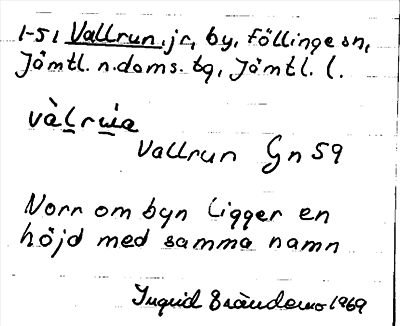 1-51 Vallrun, jr, by, Föllinge sn,
Jämtl. n. doms. tg, Jämtl. l.
vàl̲ru̲̇a
Vallrun Gn 59
Norr om byn ligger en
höjd med samma namn
Ingrid Brändemo 1969